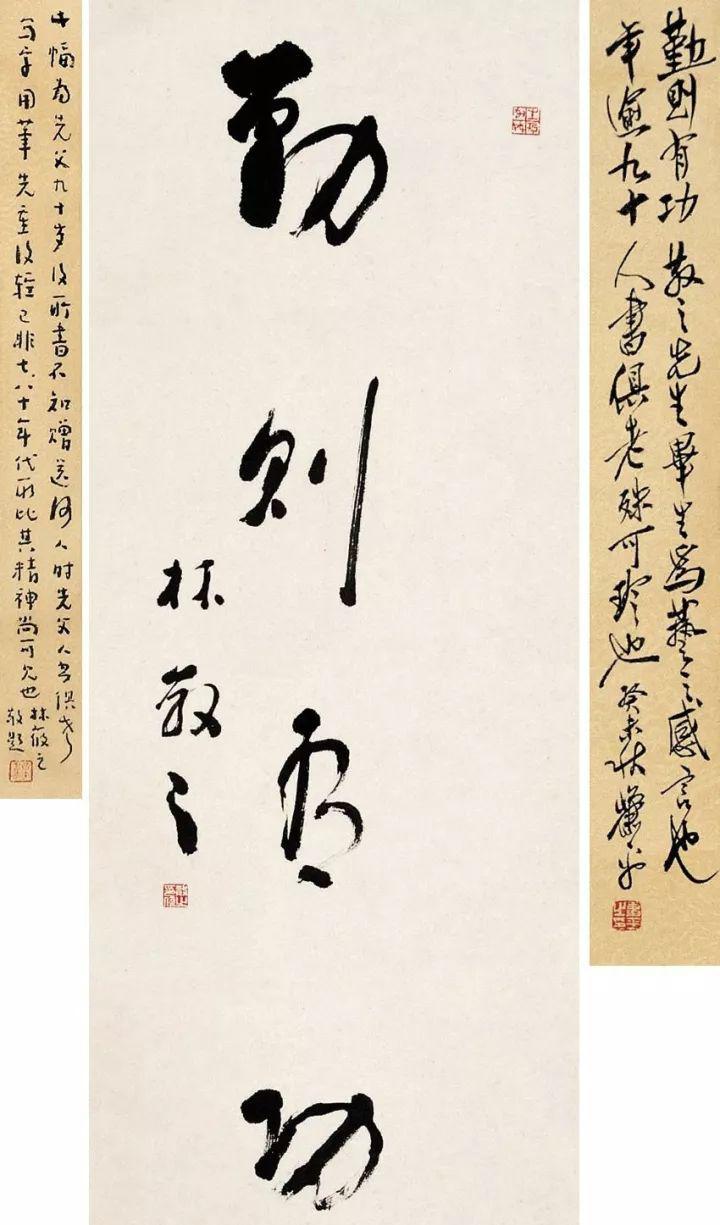 勤則有功 散之先生畢生爲藝之感言也
年逾九十人書俱老殊可珍也 癸未秋蕭平
勤則有功
林散之
此幅为先父九十岁后所書不知赠送何人时先父人书俱老
写字用筆先重后轻已非七八十年代所比其精神尚可见也
林筱之
敬题